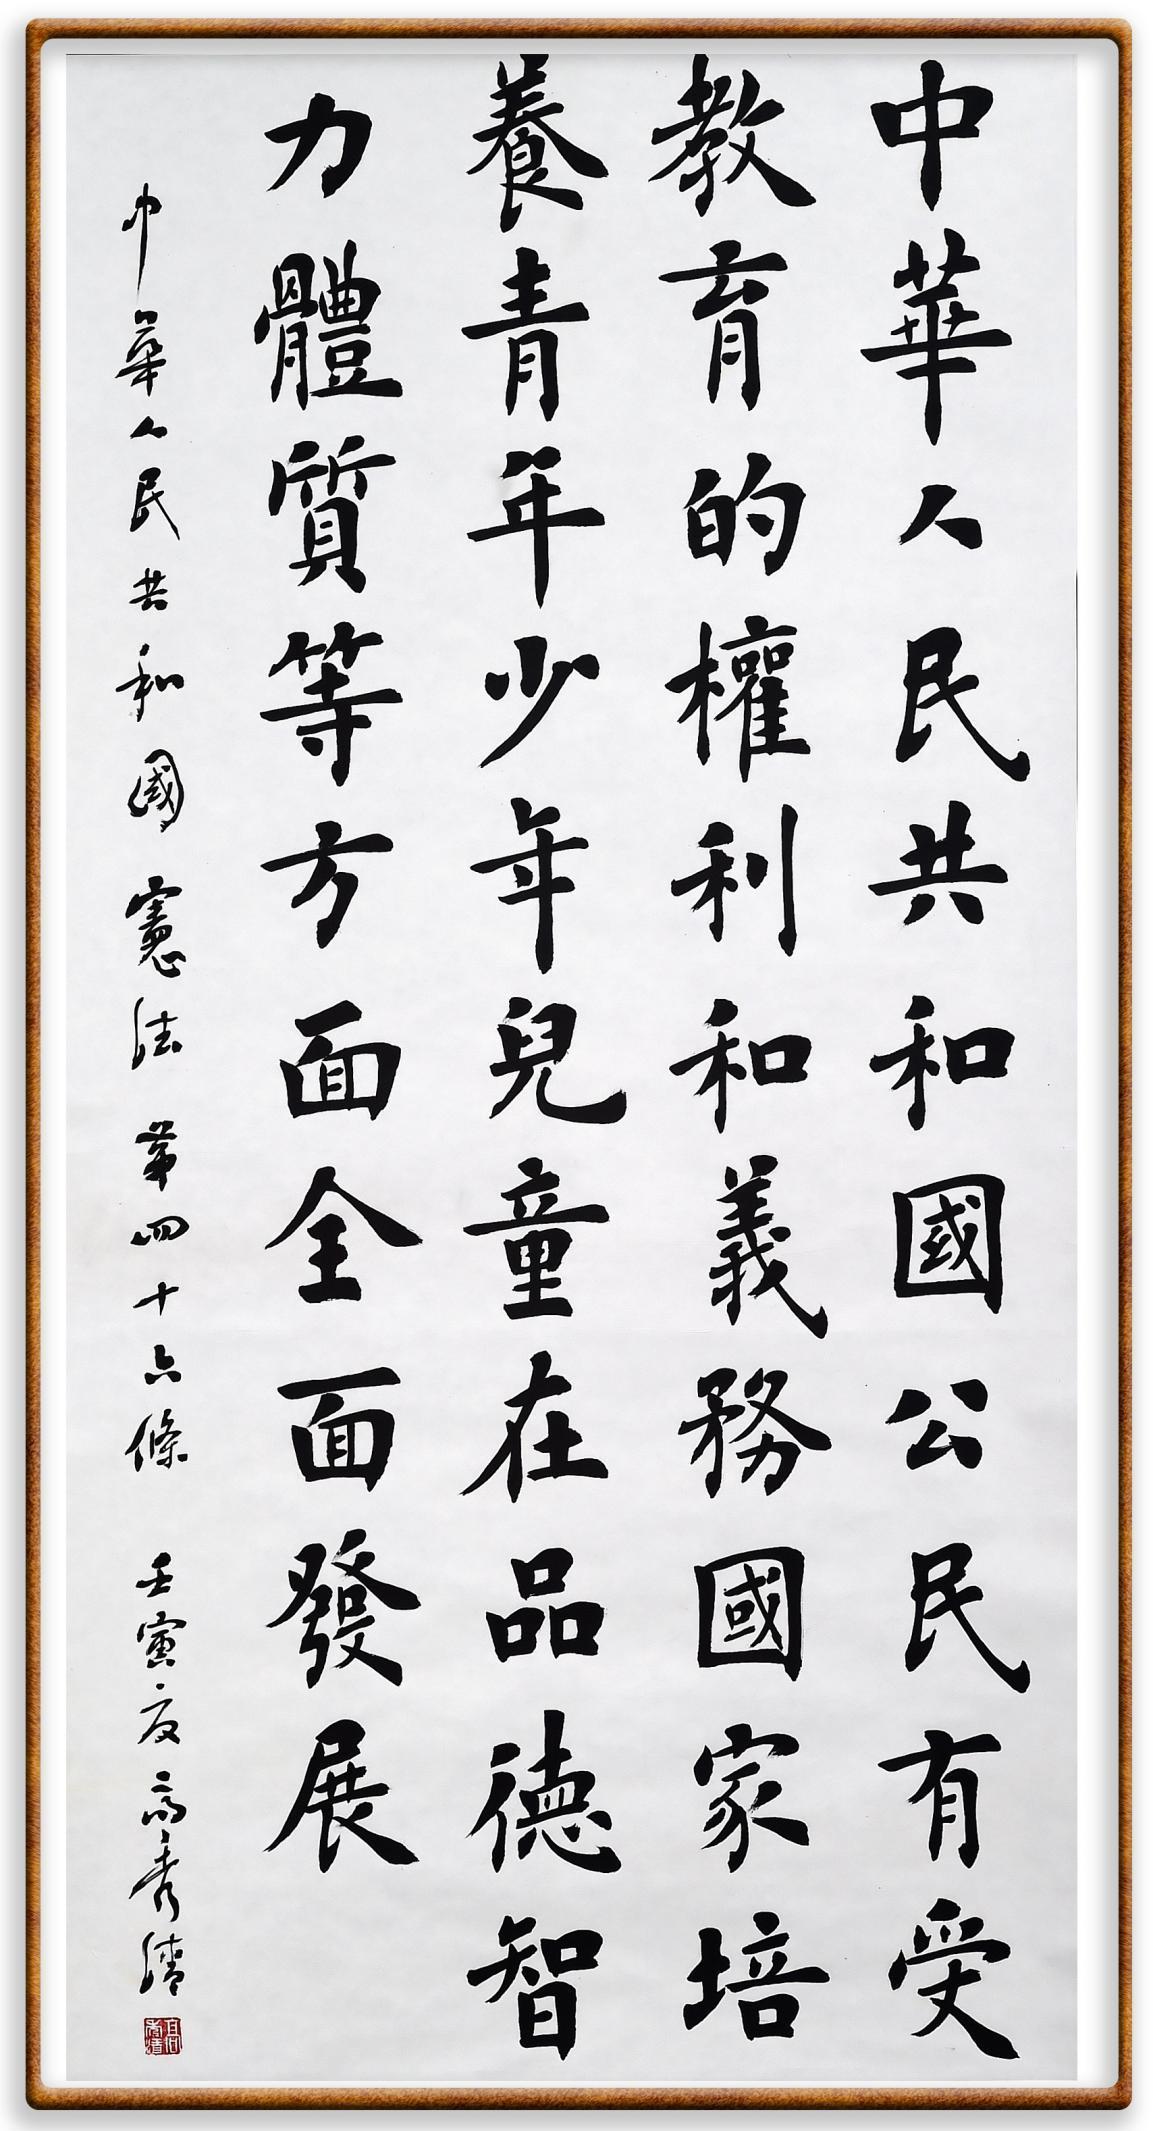 中華人民共和國公民有受
教育的權利和義務國家培
養青年少年兒童在品德智
力體質等方面全面發展
中華人民共和國憲法第四十六條 壬寅夏高秀清
高秀清